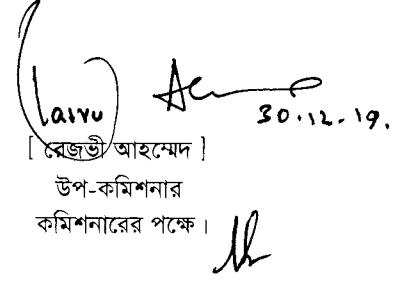 30.12.19.
[ রেজভী আহম্মেদ ]
উপ-কমিশনার
কমিশনারের পক্ষে।